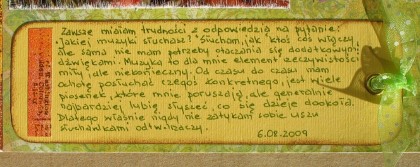 Zawsze miałam trudności z odpowiedzią na pytanie:
"Jakiej muzyki słuchasz?" Słucham, jak ktoś coś włączy,
ale sama nie mam potrzeby otaczania się dodatkowymi
dźwiękami. Muzyka to dla mnie element rzeczywistości
miły, ale niekonieczny. Od czasu do czasu mam
ochotę posłuchać czegoś konkretnego, jest wiele
piosenek, które mnie poruszają, ale generalnie
najbardziej lubię słyszeć, co się dzieje dookoła.
Dlatego właśnie nigdy nie zatykam sobie uszu
słuchawkami odtwarzaczy.
6.08.2009